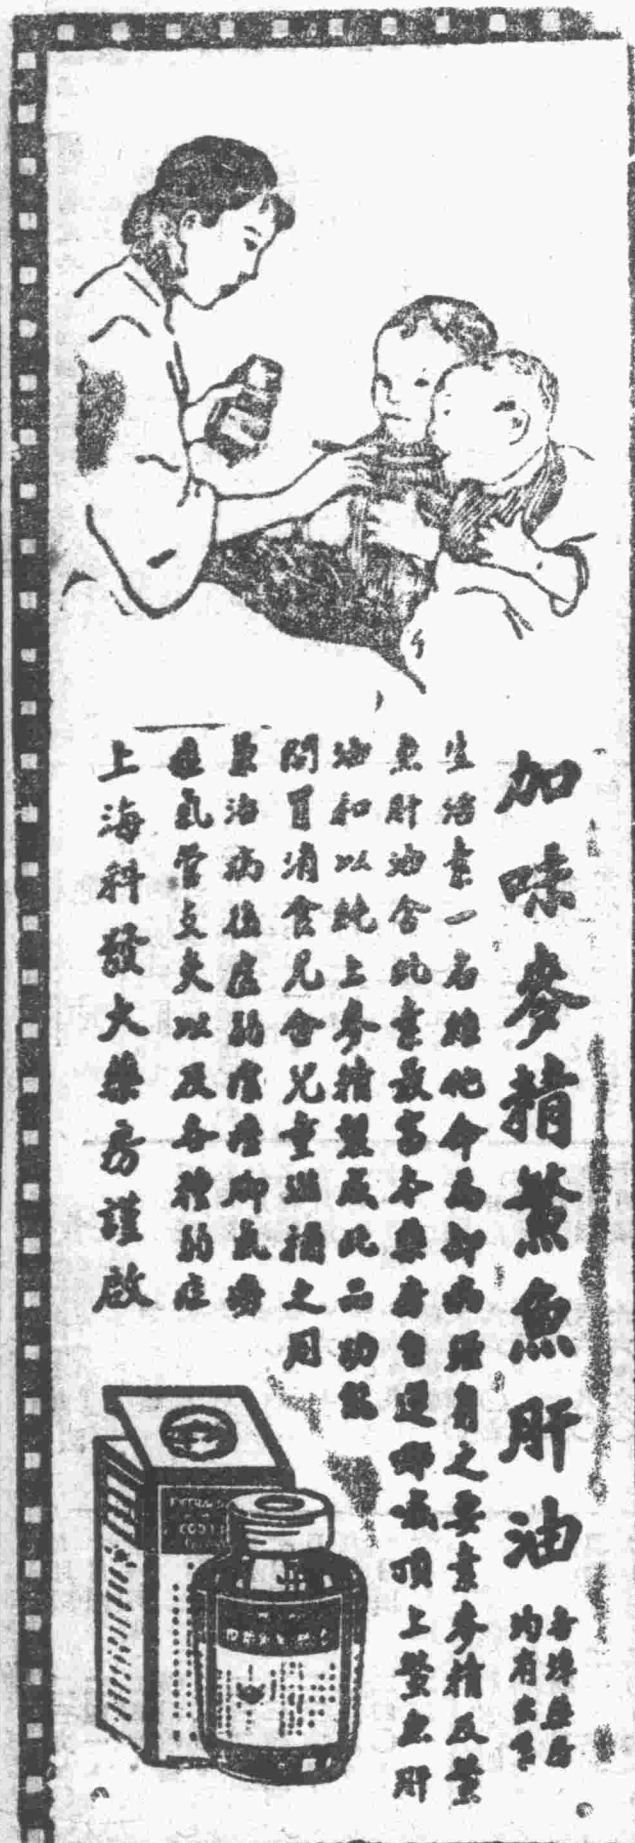 加味麥精鱉魚肝油
各埠藥房
均有出售
生活素一名維他命為卻病强身之要素麥精及鱉
魚肝油含此素最富本藥房自選挪威頂上鱉魚肝
油和以純上麥精製成此品功能
開胃消食兒童滋補之用
兼治病後虛弱瘰癧脚氣癆
症氣管支炎以及各種弱症
上海科發大藥房謹啟